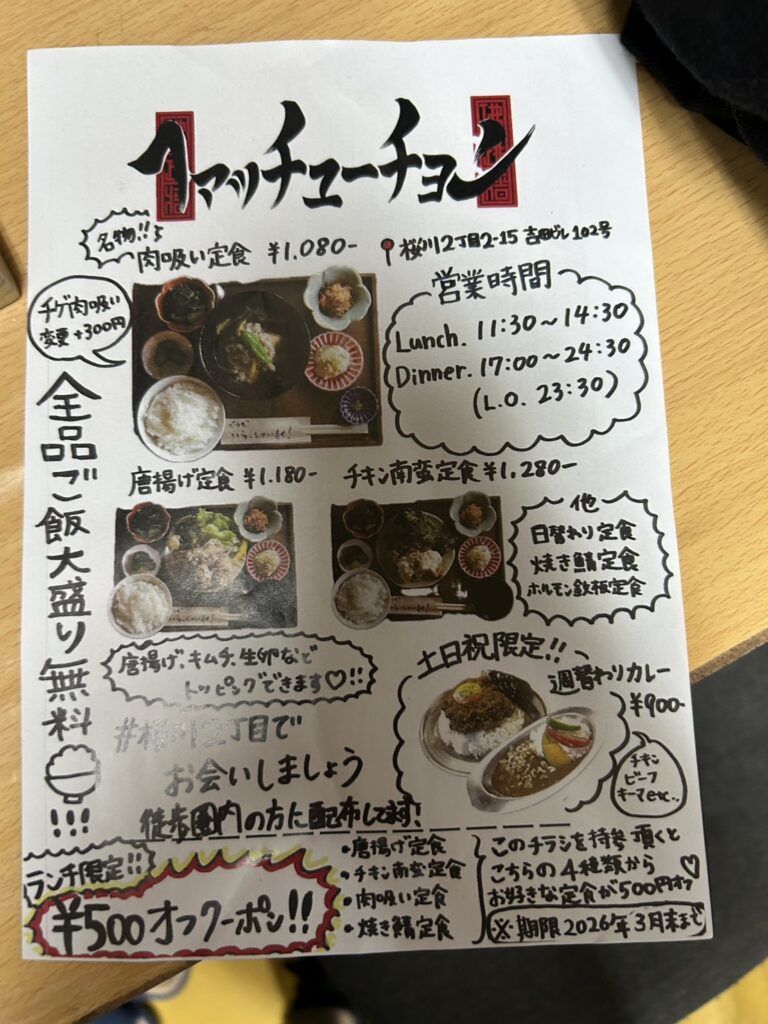 ファッチューチョン
名物!!
肉吸い定食 ¥1.080-
桜川2丁目2-15 吉田ビル102号
チゲ肉吸い
変更+300円
営業時間
Lunch. 11:30~14:30
Dinner. 17:00~24:30
(L.O. 23:30)
いらっしゃいませ!
全品ご飯大盛り無料!!!
唐揚げ定食 ¥1.180-
チキン南蛮定食 ¥1,280-
他
日替わり定食
焼き鯖定食
ホルモン鉄板定食
唐揚げ、キムチ、生卵などで
トッピングできます♡!!
土日祝限定!!
週替わりカレー
¥900-
チキン
ビーフ
キーマetc..
#桜川2丁目で
お会いしましょう
徒歩圏内の方に配布してます!
ランチ限定!!
¥500オフクーポン!!
・唐揚げ定食
・チキン南蛮定食
・肉吸い定食
・焼き鯖定食
このチラシを持参頂くと
こちらの4種類から
お好きな定食が500円オフ♡
※期限2026年3月末まで